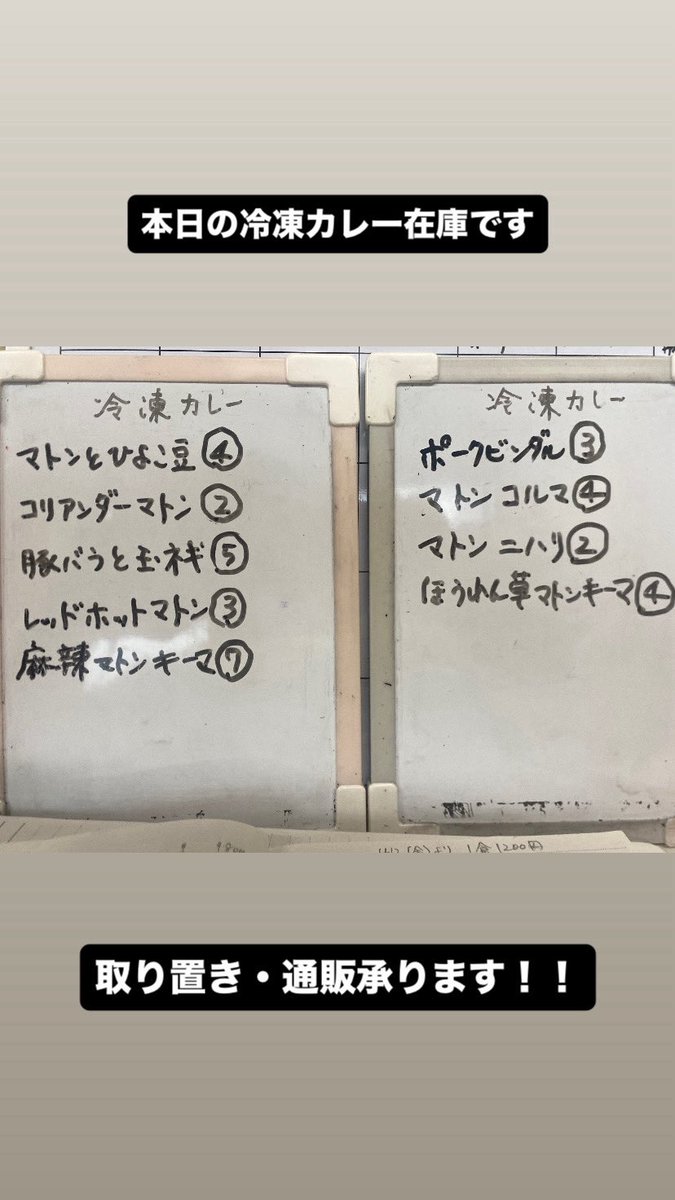 本日の冷凍カレー在庫です
冷凍カレー
マトンとひよこ豆④
コリアンダーマトン②
豚バラと玉ネギ⑤
レッドホットマトン③
麻辣マトンキーマ⑦
冷凍カレー
ポークビンダル③
マトンコルマ④
マトンニハリ②
ほうれん草マトンキーマ④
1食1200円
取り置き・通販承ります！！